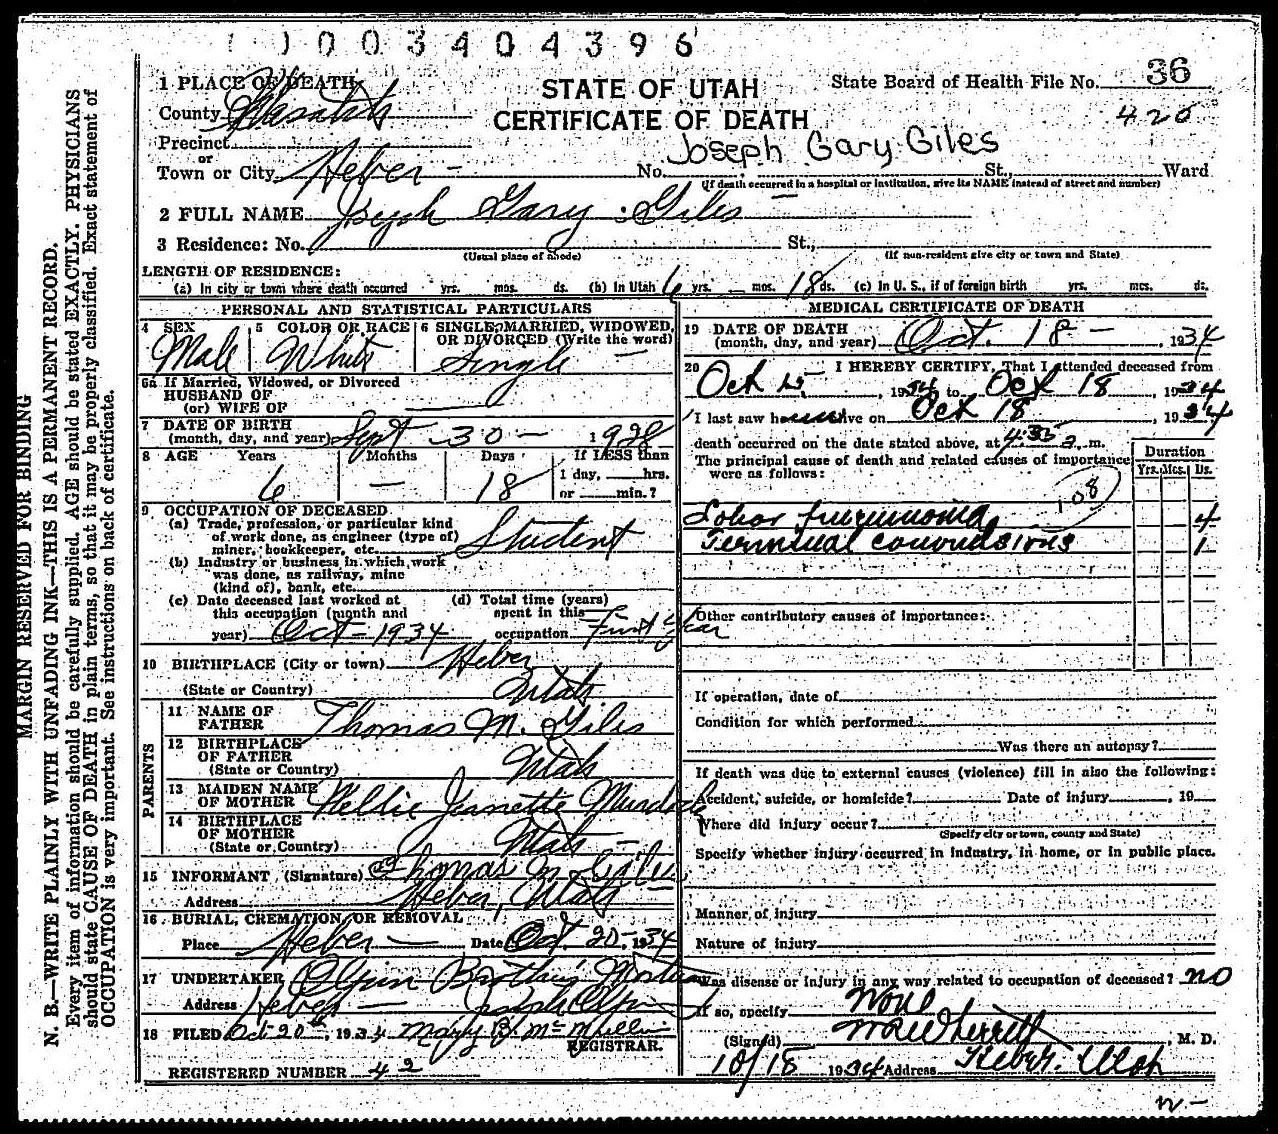 1003404396
1 PLACE OF DEATH
STATE OF UTAH
State Board of Health File No. 36
County Wasatch
CERTIFICATE OF DEATH
420
Precinct
or
Joseph Gary Giles
Town or City Heber - No. St., Ward
(If death occurred in a hospital or institution, give its NAME instead of street and number)
2 FULL NAME Joseph Gary Giles
3 Residence: No. St.,
(Usual place of abode) (If non-resident give city or town and State)
LENGTH OF RESIDENCE:
(a) In city or town where death occurred yrs. mos. ds. (b) In Utah 6 yrs. — mos. 18 ds. (c) In U. S., if of foreign birth yrs. mos. ds.
PERSONAL AND STATISTICAL PARTICULARS
4 SEX 5 COLOR OR RACE 6 SINGLE, MARRIED, WIDOWED, OR DIVORCED (Write the word)
Male White Single —
6a If Married, Widowed, or Divorced
HUSBAND OF
(or) WIFE OF
7 DATE OF BIRTH
(month, day, and year) Sept 30 - 1928
8 AGE Years Months Days If LESS than
6 — 18 1 day, hrs.
or min.?
9 OCCUPATION OF DECEASED
(a) Trade, profession, or particular kind
of work done, as engineer (type of)
miner, bookkeeper, etc. Student
(b) Industry or business in which work
was done, as railway, mine
(kind of), bank, etc.
(c) Date deceased last worked at (d) Total time (years)
this occupation (month and spent in this
year) Oct - 1934 occupation First Year
10 BIRTHPLACE (City or town) Heber
(State or Country) Utah
PARENTS
11 NAME OF
FATHER Thomas M. Giles
12 BIRTHPLACE
OF FATHER
(State or Country) Utah
13 MAIDEN NAME
OF MOTHER Nellie Jeanette Murdock
14 BIRTHPLACE
OF MOTHER
(State or Country) Utah
15 INFORMANT (Signature) Thomas M Giles
Address Heber, Utah
16 BURIAL, CREMATION, OR REMOVAL
Place Heber — Date Oct. 20 - 1934
17 UNDERTAKER Olpin Brothers
Address Heber
18 FILED Oct 20th, 1934 Mary B. McMillin
REGISTRAR.
REGISTERED NUMBER 42
MEDICAL CERTIFICATE OF DEATH
19 DATE OF DEATH
(month, day, and year) Oct. 18 - , 1934
20 I HEREBY CERTIFY, That I attended deceased from
Oct 15, 1934 to Oct 18, 1934
I last saw h alive on Oct 18 1934
death occurred on the date stated above, at 4:35 a m.
The principal cause of death and related causes of importance
were as follows:
Duration
Yrs. Mos. Ds.
108
Lobar pneumonia 4
Terminal convulsions 1
Other contributory causes of importance:
If operation, date of
Condition for which performed
Was there an autopsy?
If death was due to external causes (violence) fill in also the following:
Accident, suicide, or homicide? Date of injury , 19
Where did injury occur?
(Specify city or town, county and State)
Specify whether injury occurred in industry, in home, or in public place.
Manner of injury
Nature of injury
Was disease or injury in any way related to occupation of deceased? no
If so, specify None
(Signed) , M. D.
10/18 1934 Address Heber. Utah
MARGIN RESERVED FOR BINDING
N. B.—WRITE PLAINLY WITH UNFADING INK—THIS IS A PERMANENT RECORD.
Every item of information should be carefully supplied. AGE should be stated EXACTLY. PHYSICIANS
should state CAUSE OF DEATH in plain terms, so that it may be properly classified. Exact statement of
OCCUPATION is very important. See instructions on back of certificate.